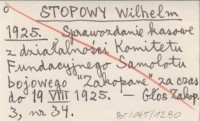 STOPOWY Wilhelm
1925. Sprawozdanie kasowe
z działalności Komitetu
Fundacyjnego Samolotu
bojowego "Zakopane" za czas
do 19 VIII 1925. — Głos Zakop.
3, nr 34.